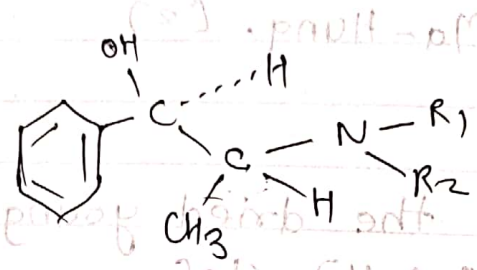 OH
H
C
N – R1
C
R2
H
CH3